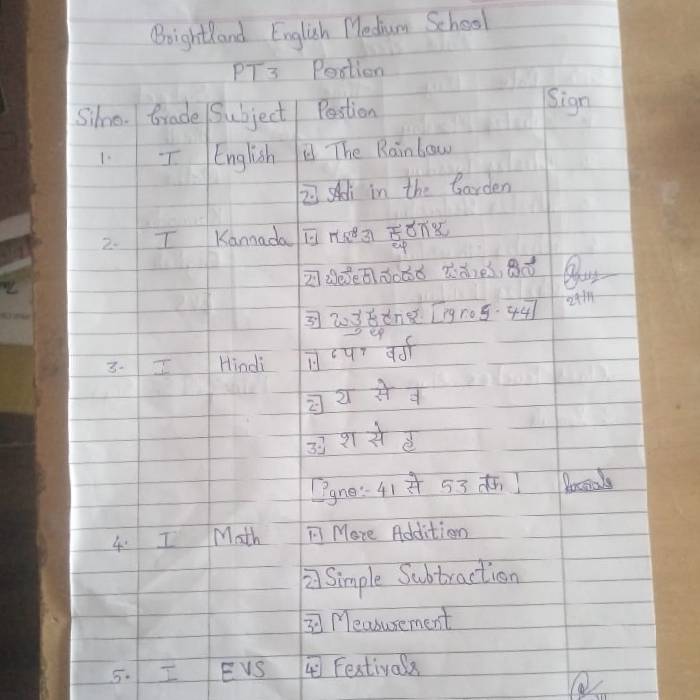 Brightland English Medium School
PT3 Portion
Sl.no. Grade Subject Portion Sign
1. I English 1] The Rainbow
2] Adi in the Garden
2. I Kannada 1]
2] ವಿವೇಕಾನಂದರ ದಿನ
3] [Pg no 44]
3. I Hindi 1] "प" वर्ग
2] य से व
3] श से ह
[Pg no:- 41 से 53 तक]
4. I Math 1] More Addition
2] Simple Subtraction
3] Measurement
5. I EVS 4] Festivals